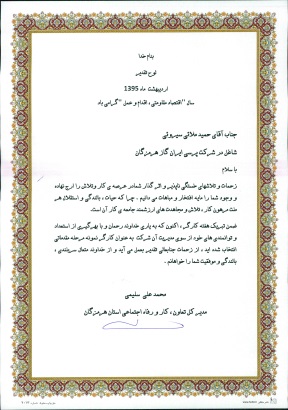 بنام خدا
لوح تقدیر
اردیبهشت ماه 1395
سال "اقتصاد مقاومتی، اقدام و عمل" گرامی باد
جناب آقای حمید ملائی سیروئی
شاغل در شرکت پرسی ایران گاز هرمزگان
با سلام
زحمات و تلاشهای خستگی ناپذیر و اثر گذار شما در عرصه ی کار وتلاش را ارج نهاده
و وجود شما را مایه افتخار و مباهات می دانیم . چرا که حیات ، بالندگی و استقلال هر
ملت مرهون کار، تلاش و مجاهدت های ارزشمند جامعه ی کار آن است.
ضمن تبریک هفته کارگر، اکنون که به یاری خداوند رحمان و با بهرگیری از استعداد
و توانمندی های خود از سوی مدیریت آن شرکت به عنوان کارگر نمونه مرحله مقدماتی
انتخاب شده اید ، از زحمات جنابعالی تقدیر بعمل می آید و از خداوند متعال سربلندی ،
بالندگی و موفقیت شما را خواهانم .
محمد علی سلیمی
مدیر کل تعاون، کار و رفاه اجتماعی استان هرمزگان